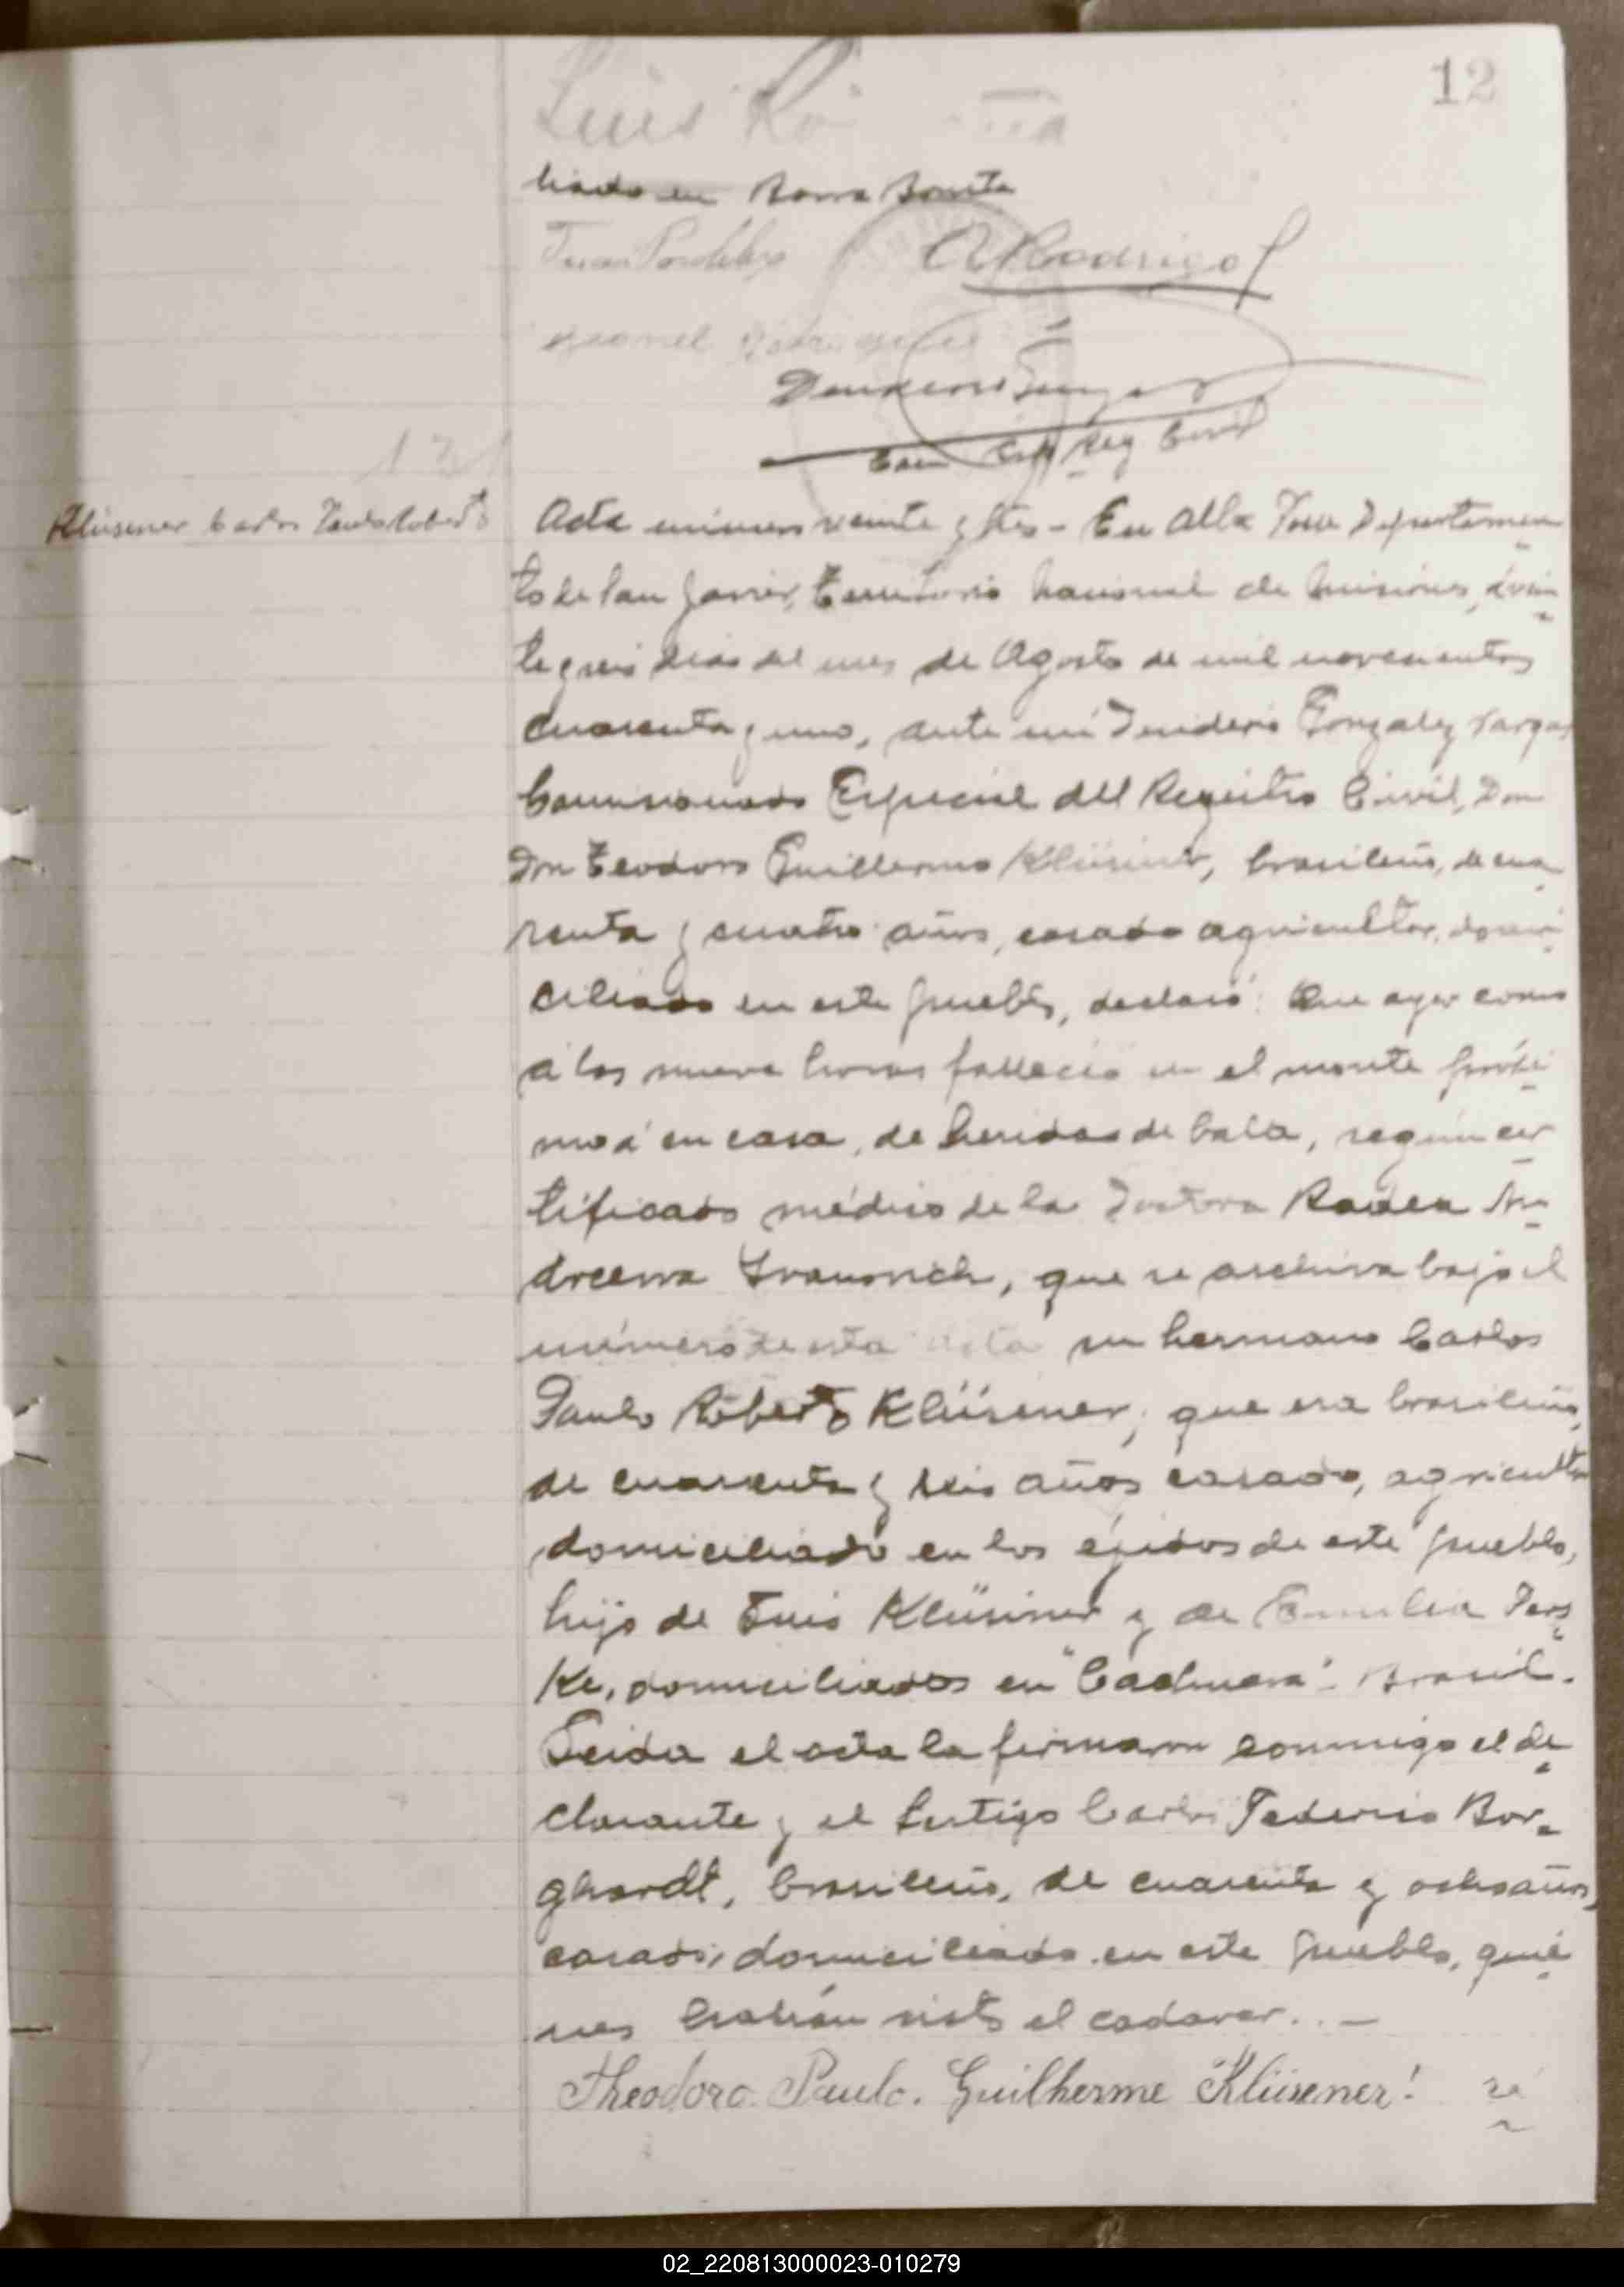 12
Luis
liado en Barra Bonita
Comi Esp Reg Civil
Klüsener Carlos Paulo Roberto
Acta número veinte y tres - En Alba Posse Departamen
to de San Javier, Territorio Nacional de Misiones, á vein
te y seis días del mes de Agosto de mil novecientos
cuarenta y uno, ante mí Desiderio González Vargas
Comisionado Especial del Registro Civil, Don
Don Teodoro Guillermo Klüsener, brasileño, de cua
renta y cuatro años, casado agricultor, domi
ciliado en este pueblo, declaró: Que ayer como
á las nueve horas falleció en el monte próxi
mo á su casa, de heridas de bala, según cer
tificado médico de la Doctora
que se archiva bajo el
número de esta acta su hermano Carlos
Paulo Roberto Klüsener, que era brasileño,
de cuarenta y seis años casado, agricultor
domiciliado en los ejidos de este pueblo,
hijo de Luis Klüsener y de Emilia
ke, domiciliados en "Cachuera" Brasil.
Leida el acta la firmaron conmigo el de
clarante y el testigo Carlos Federico Bor
ghardt, brasileño, de cuarenta y ocho años,
casado, domiciliado en este pueblo, quié
nes habían visto el cadaver. . —
Theodoro. Paulo. Guilherme Klüsener!
02_220813000023-010279